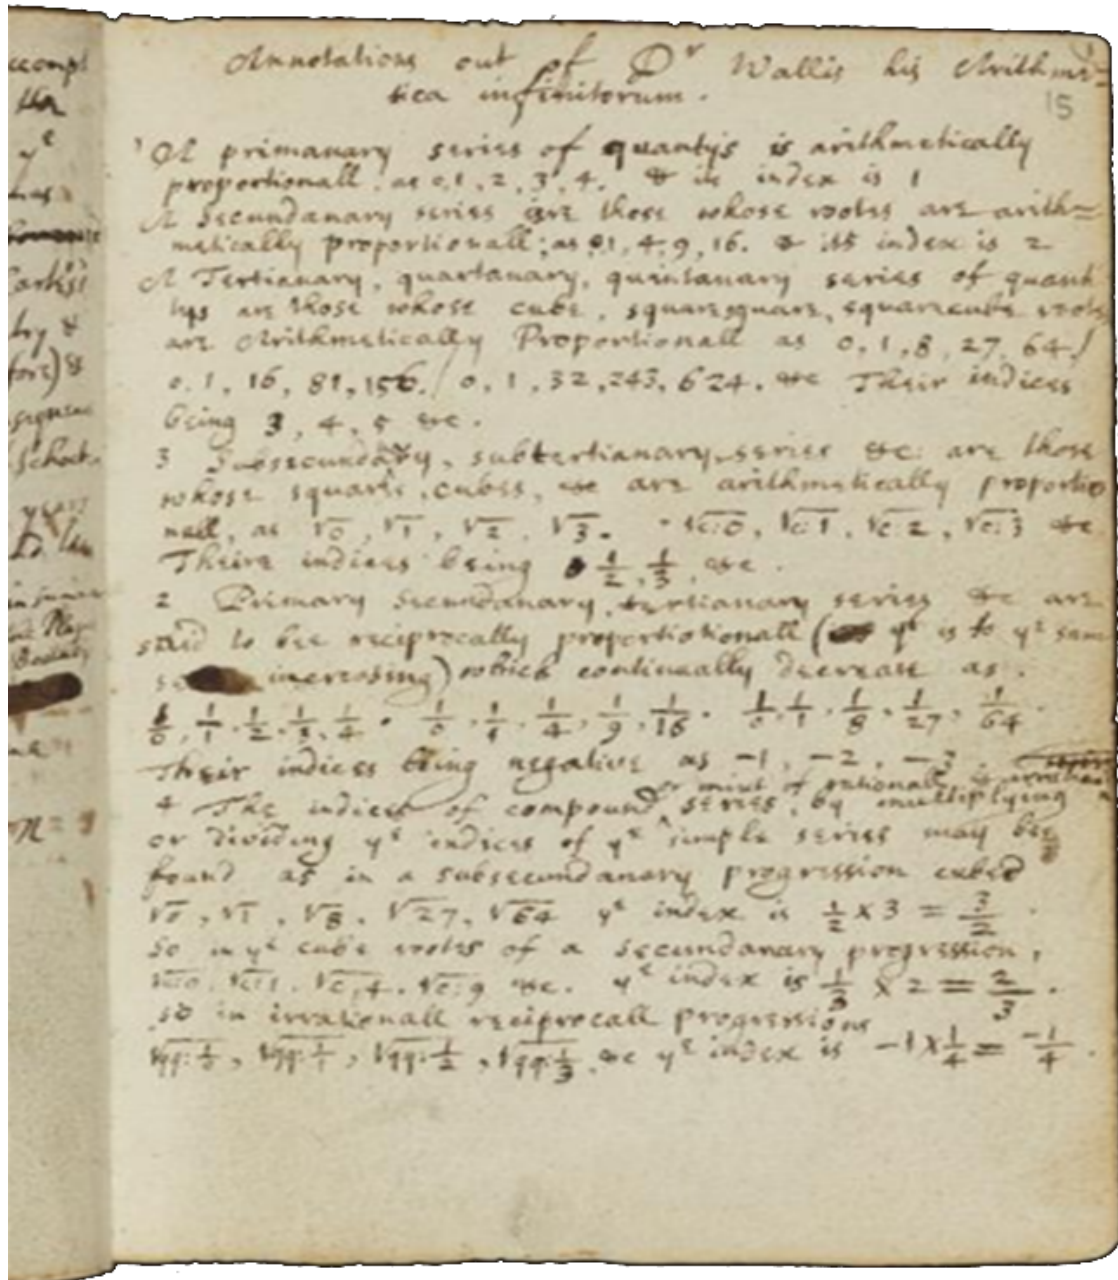 Annotations out of Dr Wallis his Arithme=
tica infinitorum.
15
1 A primanary series of quantys is arithmetically
proportionall. as 0,1,2,3,4. & its index is 1
A Secundanary series are those whose rootes are arith=
metically proportionall; as 0,1,4,9,16. & its index is 2
A Tertianary, quartanary, quintanary series of quanti
tys are those whose cube, squaresquare, squarecube roots
are Arithmetically Proportionall as 0,1,8,27,64./
0,1,16,81,156./ 0,1,32,243,624. &c Their indices
being 3,4,5 &c.
3 Subsecundary, subtertianary series &c: are those
whose squares, cubes, &c are arithmetically proportio
nall, as √0, √1, √2, √3. √c:0, √c:1, √c:2, √c:3 &c
Theire indices being 1/2, 1/3, &c.
2 Primary Secundanary, tertianary series &c are
said to bee reciprocally proportionall ( ye is to ye same
increasing) which continually decrease as.
1/0, 1/1, 1/2, 1/3, 1/4. 1/0, 1/1, 1/4, 1/9, 1/16. 1/0, 1/1, 1/8, 1/27, 1/64.
Their indices being negative as -1, -2, -3.
or mixt of rationall &
4 The indices of compound series, by multiplying
or dividing ye indices of ye simple series may bee
found as in a subsecundanary progression cubed
√0, √1, √8, √27, √64 ye index is 1/2 × 3 = 3/2.
So in ye cube rootes of a Secundanary progression,
√c:0, √c:1, √c,4. √c:9 &c. ye index is 1/3 × 2 = 2/3.
so in irrationall reciprocall progressions
√qq:1/0, √qq:1/1, √qq:1/2, √qq:1/3. &c ye index is -1×1/4 = -1/4.